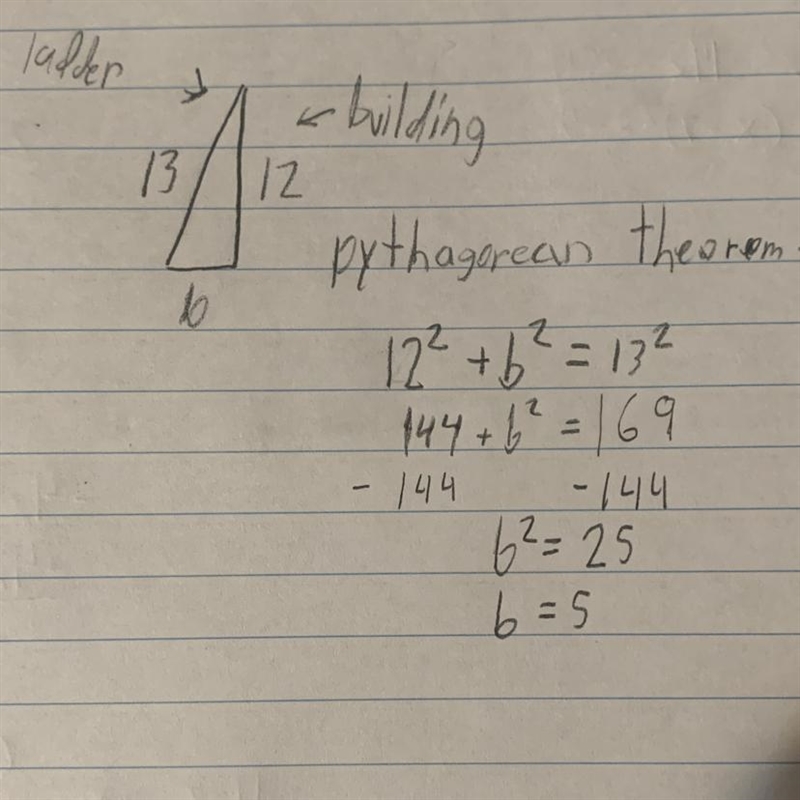 ladder
← building
13
12
b
pythagorean theorem.
12² + b² = 13²
144 + b² = 169
- 144 - 144
b² = 25
b = 5